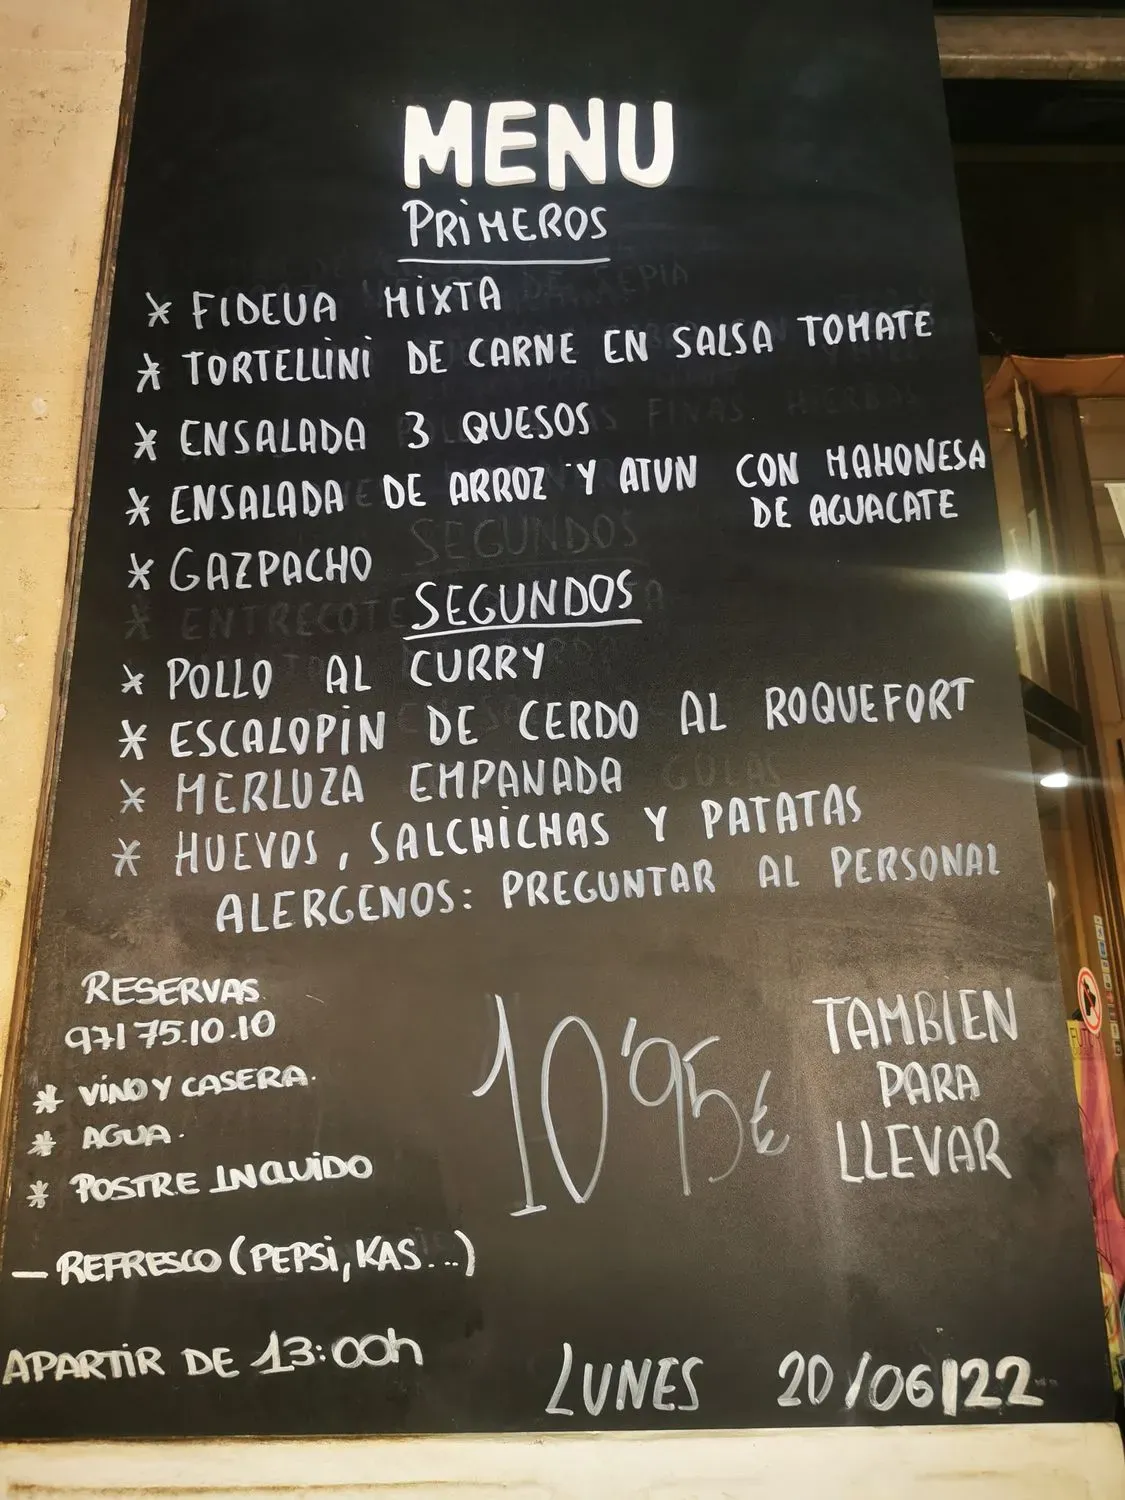 MENU
PRIMEROS
* FIDEUA MIXTA
* TORTELLINI DE CARNE EN SALSA TOMATE
* ENSALADA 3 QUESOS
* ENSALADA DE ARROZ Y ATUN CON MAHONESA
DE AGUACATE
* GAZPACHO
SEGUNDOS
* POLLO AL CURRY
* ESCALOPIN DE CERDO AL ROQUEFORT
* MERLUZA EMPANADA
* HUEVOS, SALCHICHAS Y PATATAS
ALERGENOS: PREGUNTAR AL PERSONAL
RESERVAS
971 75.10.10
* VINO Y CASERA.
* AGUA.
* POSTRE INCLUIDO
10'95€
TAMBIEN
PARA
LLEVAR
— REFRESCO (PEPSI, KAS...)
APARTIR DE 13:00h
LUNES 20/06/22